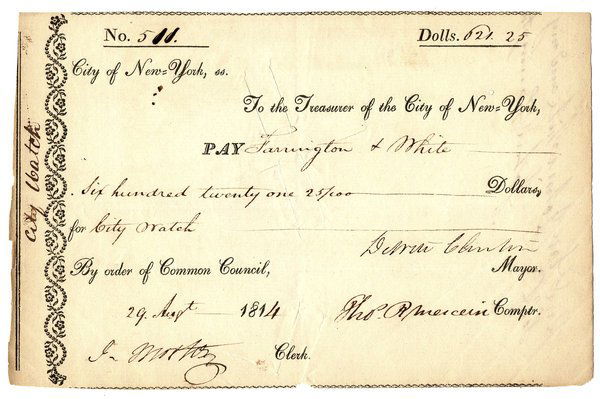 No. 511. Dolls. 621.25
City of New=York, ss.
To the Treasurer of the City of New=York,
PAY Farrington & White
Six hundred twenty one 25/100 Dollars,
for City Watch
DeWitt Clinton
By order of Common Council, Mayor.
29 Augt 1814 Thos. R Mercein Comptr.
J. Morton Clerk.
City Watch